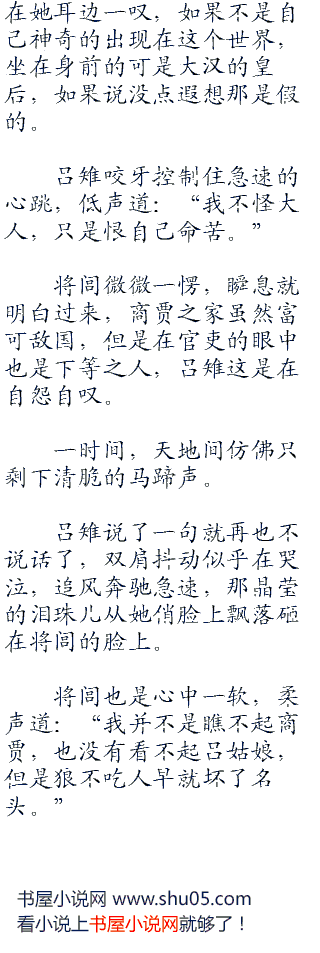 在她耳边一叹，如果不是自
己神奇的出现在这个世界，
坐在身前的可是大汉的皇
后，如果说没点遐想那是假
的。
吕雉咬牙控制住急速的
心跳，低声道：“我不怪大
人，只是恨自己命苦。”
将闾微微一愣，瞬息就
明白过来，商贾之家虽然富
可敌国，但是在官吏的眼中
也是下等之人，吕雉这是在
自怨自叹。
一时间，天地间仿佛只
剩下清脆的马蹄声。
吕雉说了一句就再也不
说话了，双肩抖动似乎在哭
泣，追风奔驰急速，那晶莹
的泪珠儿从她俏脸上飘落砸
在将闾的脸上。
将闾也是心中一软，柔
声道：“我并不是瞧不起商
贾，也没有看不起吕姑娘，
但是狼不吃人早就坏了名
头。”
书屋小说网 www.shu05.com
看小说上书屋小说网就够了！